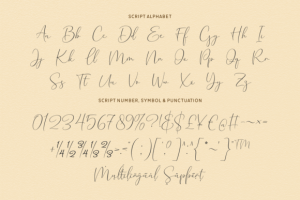 SCRIPT ALPHABET
Aa Bb Cc Dd Ee Ff Gg Hh Ii
Jj Kk Ll Mm Nn Oo Pp Qq Rr
Ss Tt Uu Vv Ww Xx Yy Zz
SCRIPT NUMBER, SYMBOL & PUNCTUATION
0123456789
Multilingual Support